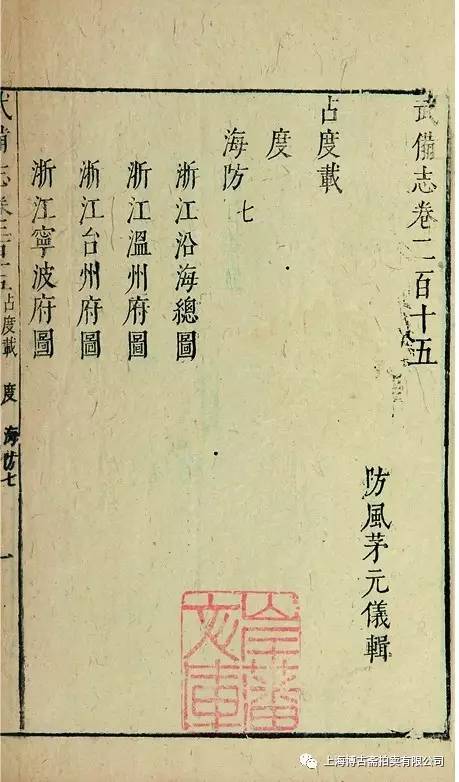 武備志卷二百十五
防風茅元儀輯
占度載
度
海防七
浙江沿海總圖
浙江溫州府圖
浙江台州府圖
浙江寧波府圖
武備志卷二百十五 占度載 度 海防七 一
文庫
上海博古斋拍卖有限公司